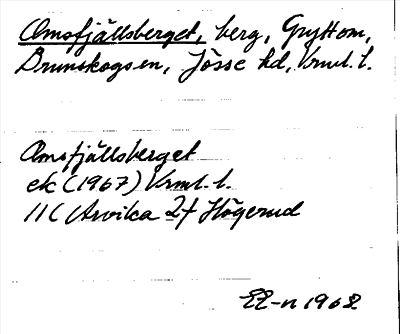 Amsfjällsberget, berg, Gryttom,
Brunskogs sn, Jösse hd, Vrml. l.
Amsfjällsberget
ek (1967) Vrml. l.
11C Arvika 2f Högerud
EE-n 1968